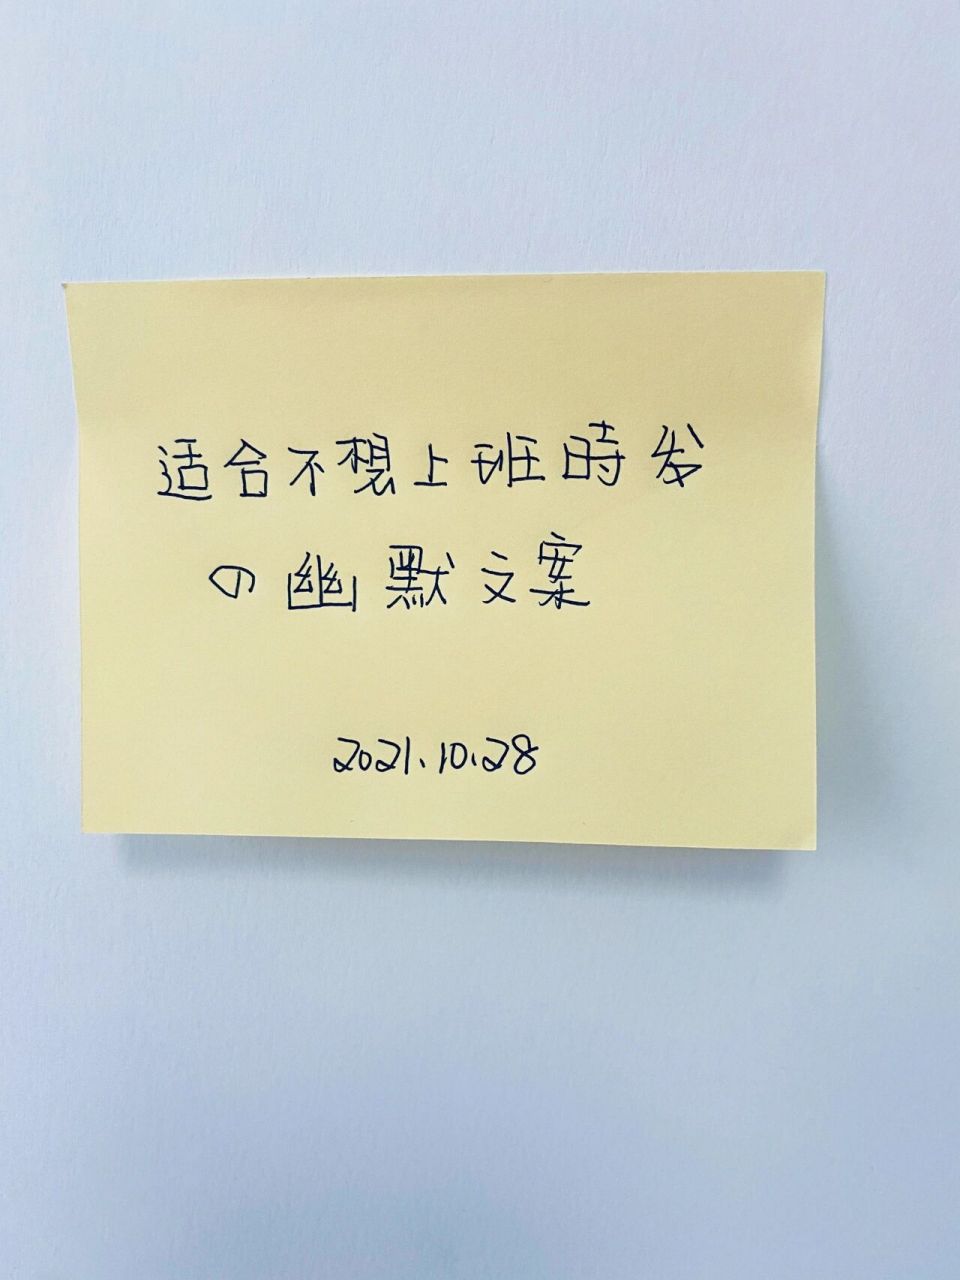 适合不想上班時发
の幽默文案
2021.10.28